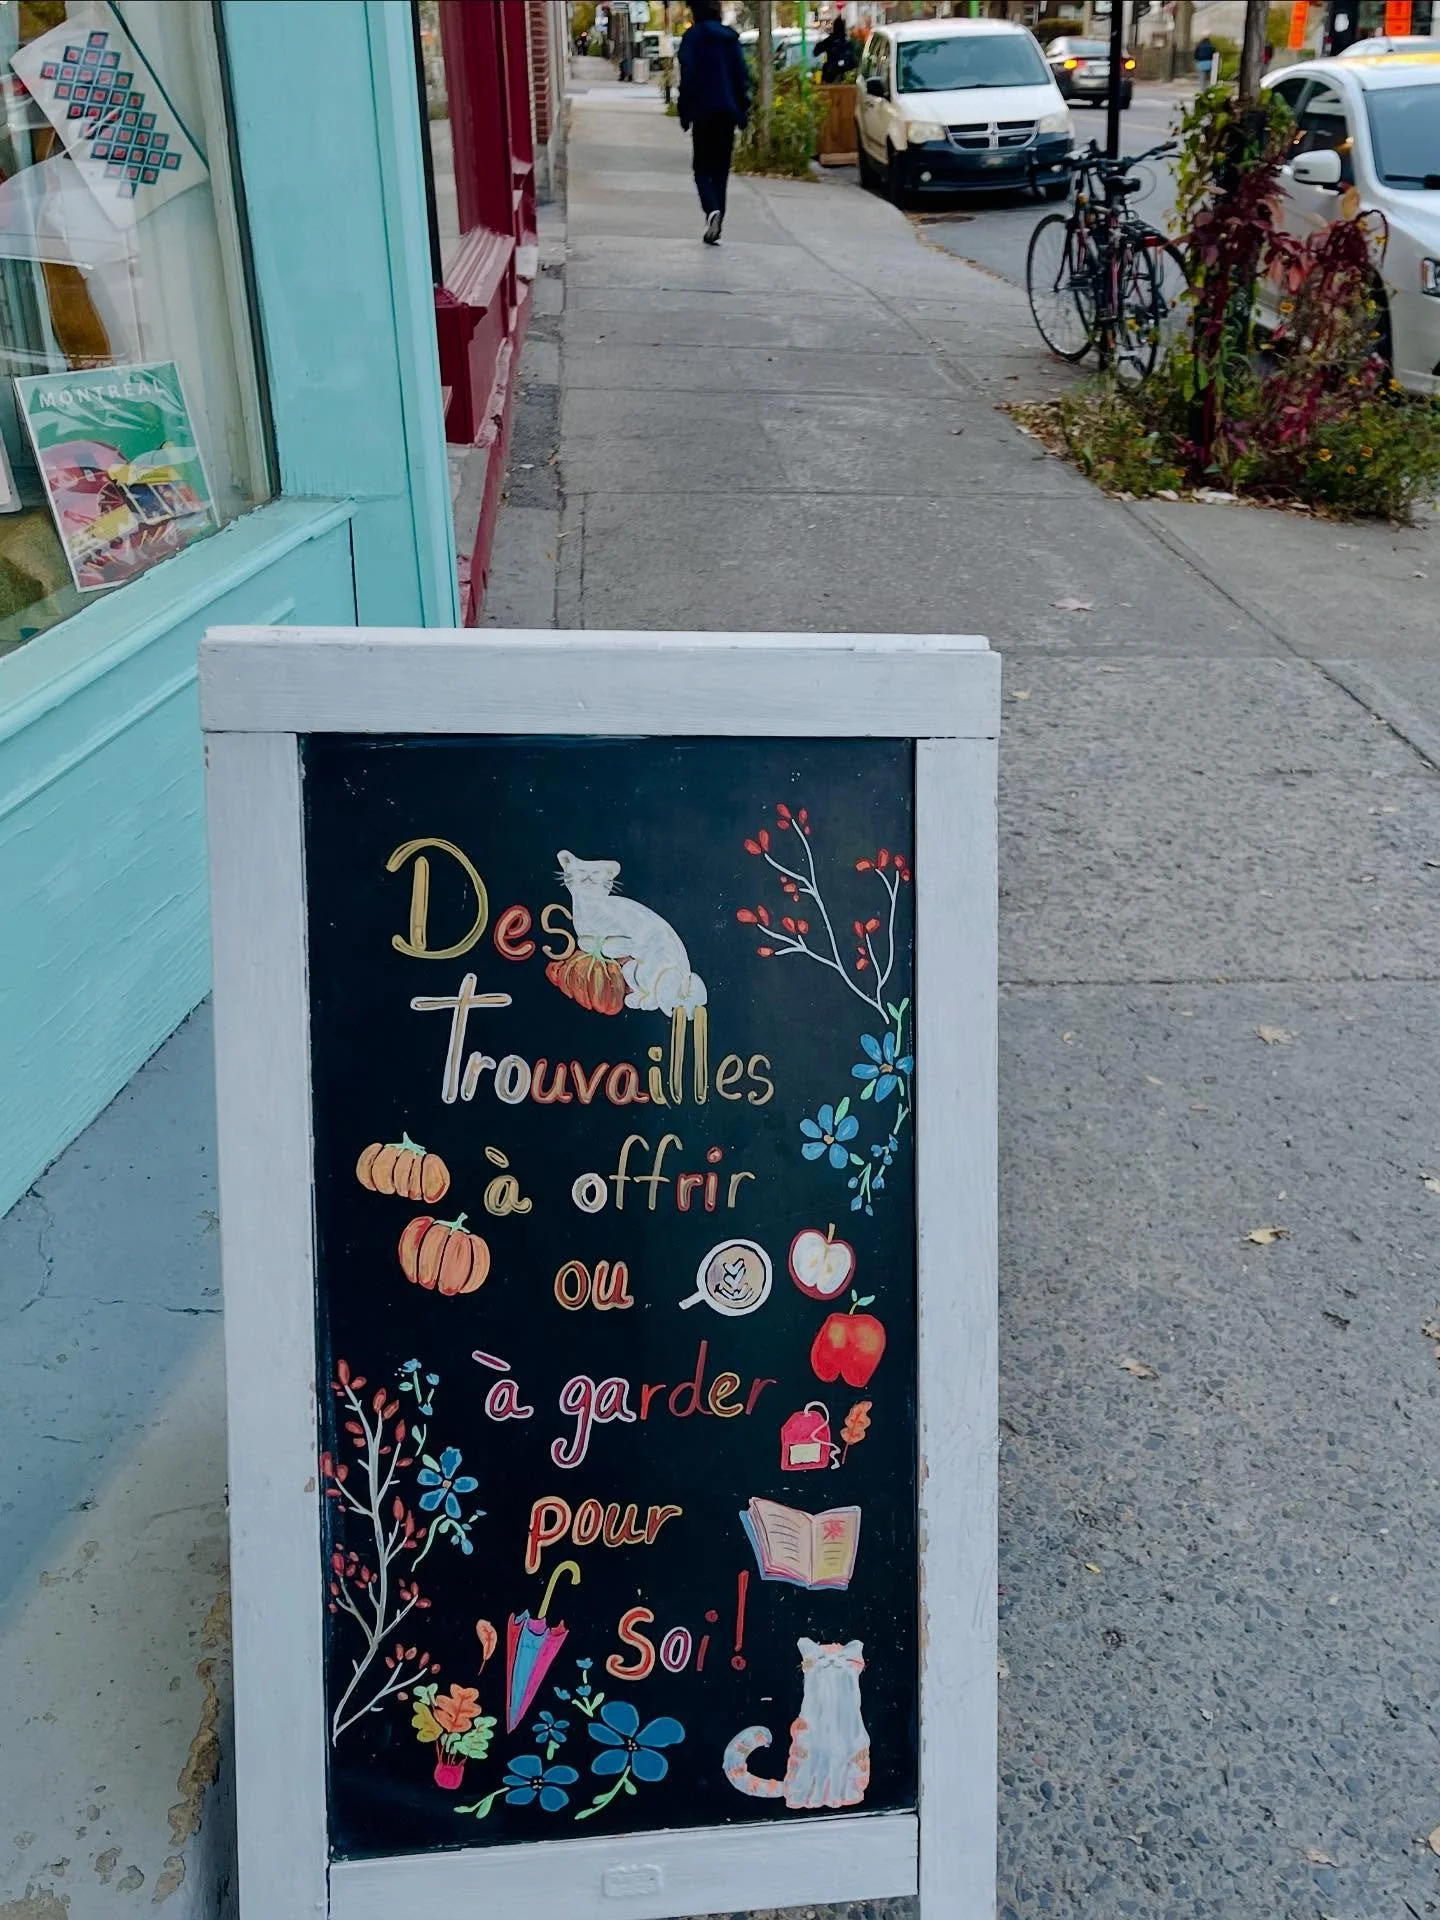 MONTRÉAL
Des
Trouvailles
à offrir
ou
à garder
pour
soi!